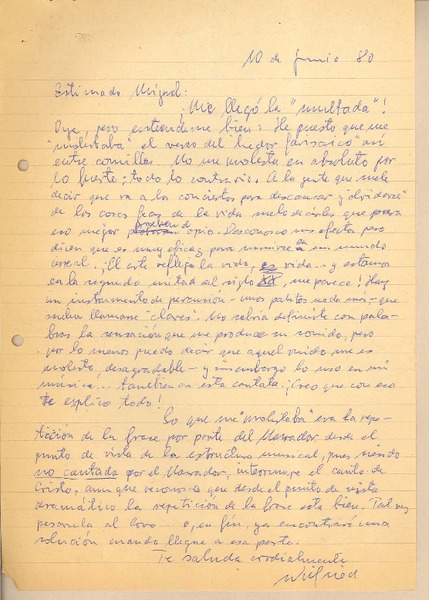 10 de junio 80
Estimado Miguel:
¡Me llegó la "multada"!
Oye, pero entendeme bien: He puesto que me
"molestaba" el verso del hedor así
entre comillas. No me molesta en absoluto por
lo fuerte; todo lo contrario. A la gente que suele
decir que va a los conciertos para descansar y "olvidarse"
de las cosas feas de la vida suelo decirles que para
eso mejor prueben de opio. Desconozco sus efectos, pero
dicen que es muy eficaz para sumirse en un mundo
irreal. ¡El arte refleja la vida, es vida - y estamos
en la segunda mitad del siglo XX, me parece! Hay
un instrumento de percusión - unos palitos nada más - que
suelen llamarse "claves". No sabría definirte con pala-
bras la sensación que me produce su sonido, pero
por lo menos puedo decir que aquel ruido me es
molesto, desagradable - y sin embargo lo uso en mi
música... también en esta cantata. ¡Creo que con eso
te explico todo!
Lo que me "molestaba" era la repe-
tición de la frase por parte del Narrador desde el
punto de vista de la estructura musical, pues siendo
no cantada por el Narrador, interrumpe el canto de
Cristo, aunque reconozco que desde el punto de vista
dramático la repetición de la frase está bien. Tal vez
pasarla al Coro - o, en fin, ya encontraré una
solución cuando llegue a esa parte.
Te saluda cordialmente
Wilfried